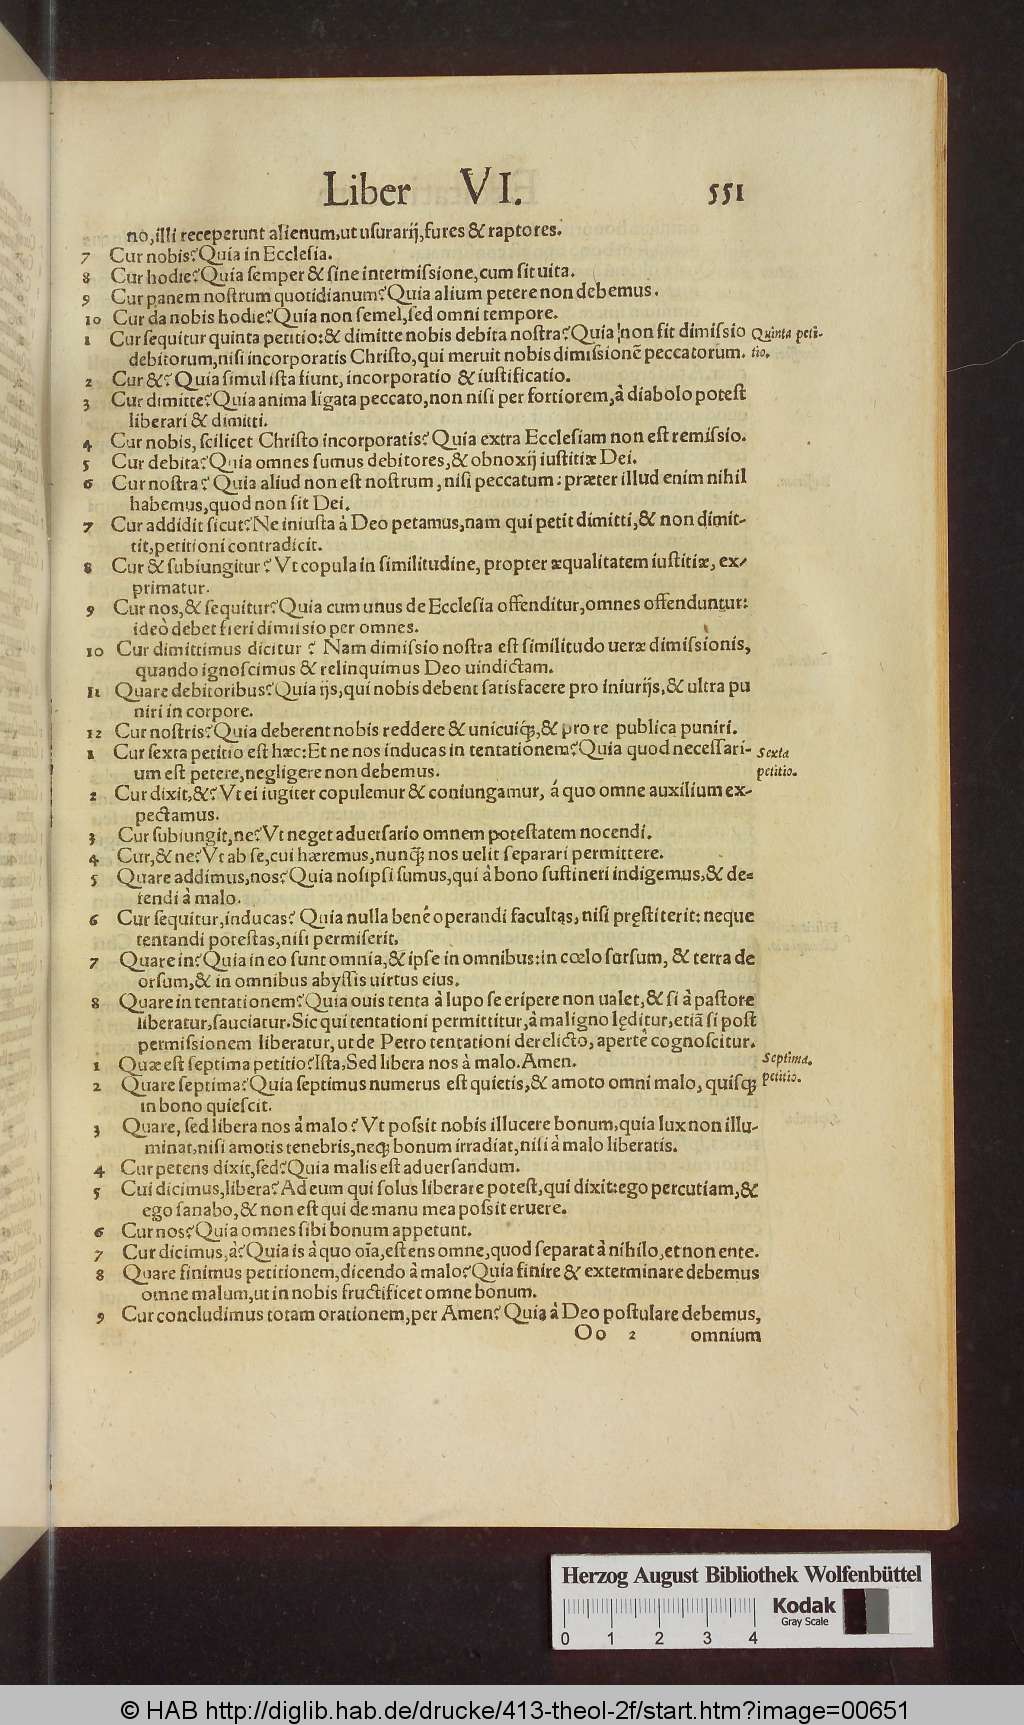 Liber VI. 551
no, illi receperunt alienum, ut usurarij, fures & raptores.
7 Cur nobis? Quia in Ecclesia.
8 Cur hodie? Quia semper & sine intermissione, cum sit uita.
9 Cur panem nostrum quotidianum? Quia alium petere non debemus.
10 Cur da nobis hodie? Quia non semel, sed omni tempore.
1 Cur sequitur quinta petitio: & dimitte nobis debita nostra? Quia non fit dimissio Quinta peti-
debitorum, nisi incorporatis Christo, qui meruit nobis dimissionẽ peccatorum. tio.
2 Cur &? Quia simul ista fiunt, incorporatio & iustificatio.
3 Cur dimitte? Quia anima ligata peccato, non nisi per fortiorem, à diabolo potest
liberari & dimitti.
4 Cur nobis, scilicet Christo incorporatis? Quia extra Ecclesiam non est remissio.
5 Cur debita? Quia omnes sumus debitores, & obnoxij iustitiæ Dei.
6 Cur nostra? Quia aliud non est nostrum, nisi peccatum: præter illud enim nihil
habemus, quod non sit Dei.
7 Cur addidit sicut? Ne iniusta à Deo petamus, nam qui petit dimitti, & non dimit-
tit, petitioni contradicit.
8 Cur & subiungitur? Vt copula in similitudine, propter æqualitatem iustitiæ, ex-
primatur.
9 Cur nos, & sequitur? Quia cum unus de Ecclesia offenditur, omnes offenduntur:
ideò debet fieri dimissio per omnes.
10 Cur dimittimus dicitur? Nam dimissio nostra est similitudo ueræ dimissionis,
quando ignoscimus & relinquimus Deo uindictam.
11 Quare debitoribus? Quia ijs, qui nobis debent satisfacere pro iniurijs, & ultra pu
niri in corpore.
12 Cur nostris? Quia deberent nobis reddere & unicuiq;, & pro re publica puniri.
1 Cur sexta petitio est hæc: Et ne nos inducas in tentationem? Quia quod necessari- Sexta
um est petere, negligere non debemus. petitio.
2 Cur dixit, &? Vt ei iugiter copulemur & coniungamur, á quo omne auxilium ex-
pectamus.
3 Cur subiungit, ne? Vt neget aduersario omnem potestatem nocendi.
4 Cur, & ne? Vt ab se, cui hæremus, nunq̃; nos uelit separari permittere.
5 Quare addimus, nos? Quia nosipsi sumus, qui à bono sustineri indigemus, & de-
fendi à malo.
6 Cur sequitur, inducas? Quia nulla benè operandi facultas, nisi pręstiterit: neque
tentandi potestas, nisi permiserit.
7 Quare in? Quia in eo sunt omnia, & ipse in omnibus: in cœlo sursum, & terra de
orsum, & in omnibus abyssis uirtus eius.
8 Quare in tentationem? Quia ouis tenta à lupo se eripere non ualet, & si à pastore
liberatur, sauciatur. Sic qui tentationi permittitur, à maligno lęditur, etiã si post
permissionem liberatur, ut de Petro tentationi derelicto, apertè cognoscitur.
1 Quæ est septima petitio? Ista, Sed libera nos à malo. Amen. Septima.
2 Quare septima? Quia septimus numerus est quietis, & amoto omni malo, quisq; petitio.
in bono quiescit.
3 Quare, sed libera nos à malo? Vt possit nobis illucere bonum, quia lux non illu-
minat, nisi amotis tenebris, neq; bonum irradiat, nisi à malo liberatis.
4 Cur petens dixit, sed? Quia malis est aduersandum.
5 Cui dicimus, libera? Ad eum qui solus liberare potest, qui dixit: ego percutiam, &
ego sanabo, & non est qui de manu mea possit eruere.
6 Cur nos? Quia omnes sibi bonum appetunt.
7 Cur dicimus, à? Quia is à quo oĩa, est ens omne, quod separat à nihilo, et non ente.
8 Quare finimus petitionem, dicendo à malo? Quia finire & exterminare debemus
omne malum, ut in nobis fructificet omne bonum.
9 Cur concludimus totam orationem, per Amen? Quia à Deo postulare debemus,
Oo 2 omnium
Herzog August Bibliothek Wolfenbüttel
0 1 2 3 4
Kodak
Gray Scale
© HAB http://diglib.hab.de/drucke/413-theol-2f/start.htm?image=00651